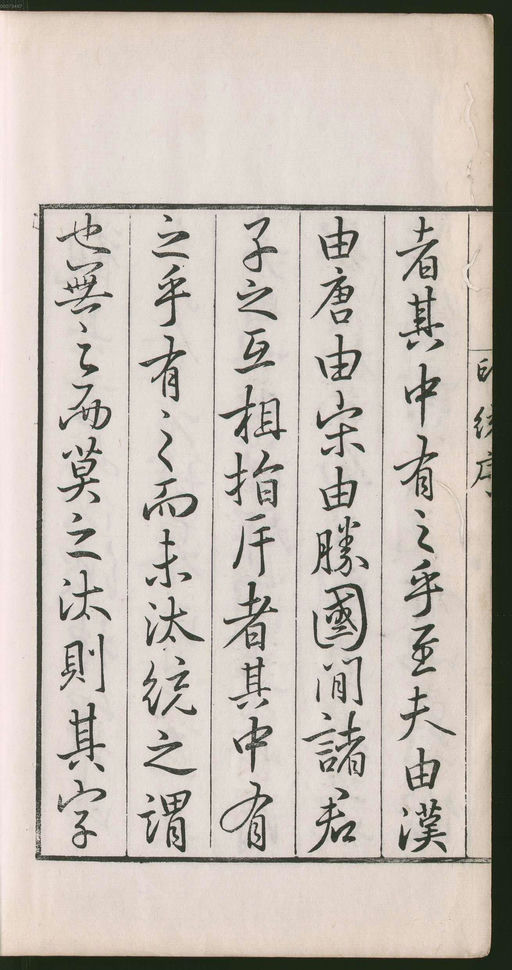 印統序
者其中有之乎至夫由漢
由唐由宋由勝國間諸君
子之互相指斥者其中有
之乎有之而未汰統之謂
也無之而莫之汰則其字